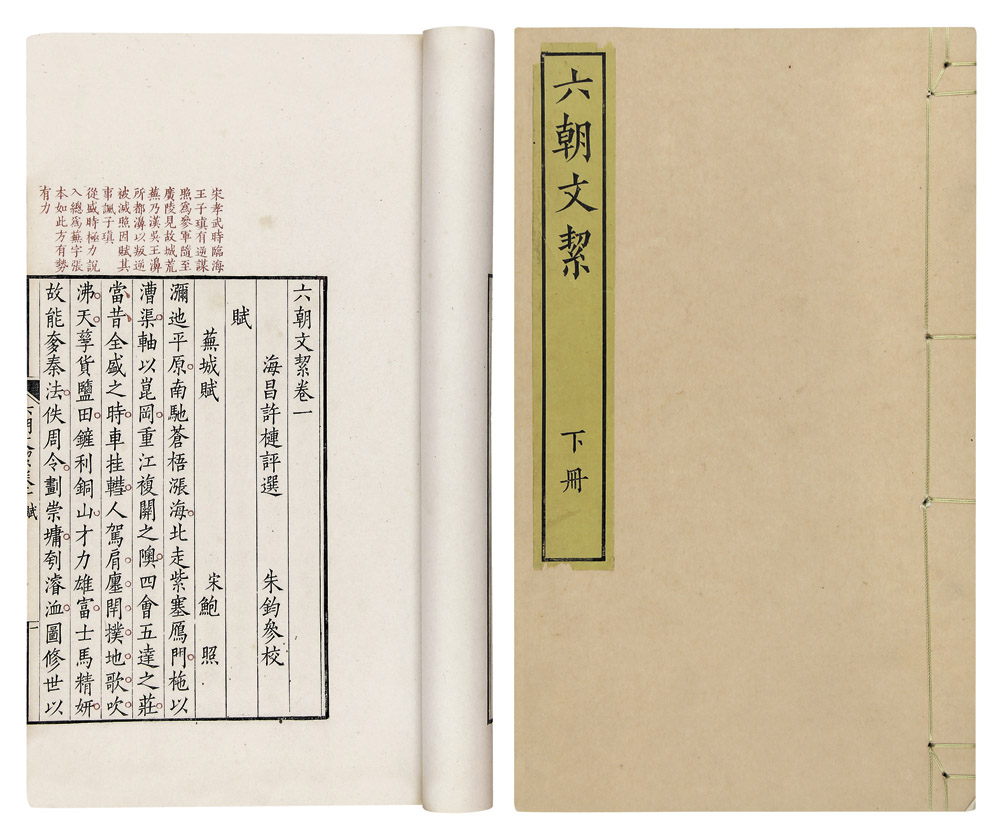 六朝文絜
下冊
宋孝武時臨海
王子瑱有逆謀
照爲參軍隨至
廣陵見故城荒
蕪乃漢吳王濞
所都濞以叛逆
被滅照因賦其
事諷子瑱
從盛時極力說
入總爲蕪字張
本如此方有勢
有力
六朝文絜卷一
海昌許槤評選 朱鈞參校
賦
蕪城賦 宋鮑照
瀰迆平原南馳蒼梧漲海北走紫塞鴈門柂以
漕渠軸以崑岡重江複關之隩四會五達之莊
當昔全盛之時車挂轊人駕肩廛閈撲地歌吹
沸天孳貨鹽田鏟利銅山才力雄富士馬精妍
故能奓秦法佚周令劃崇墉刳濬洫圖修世以